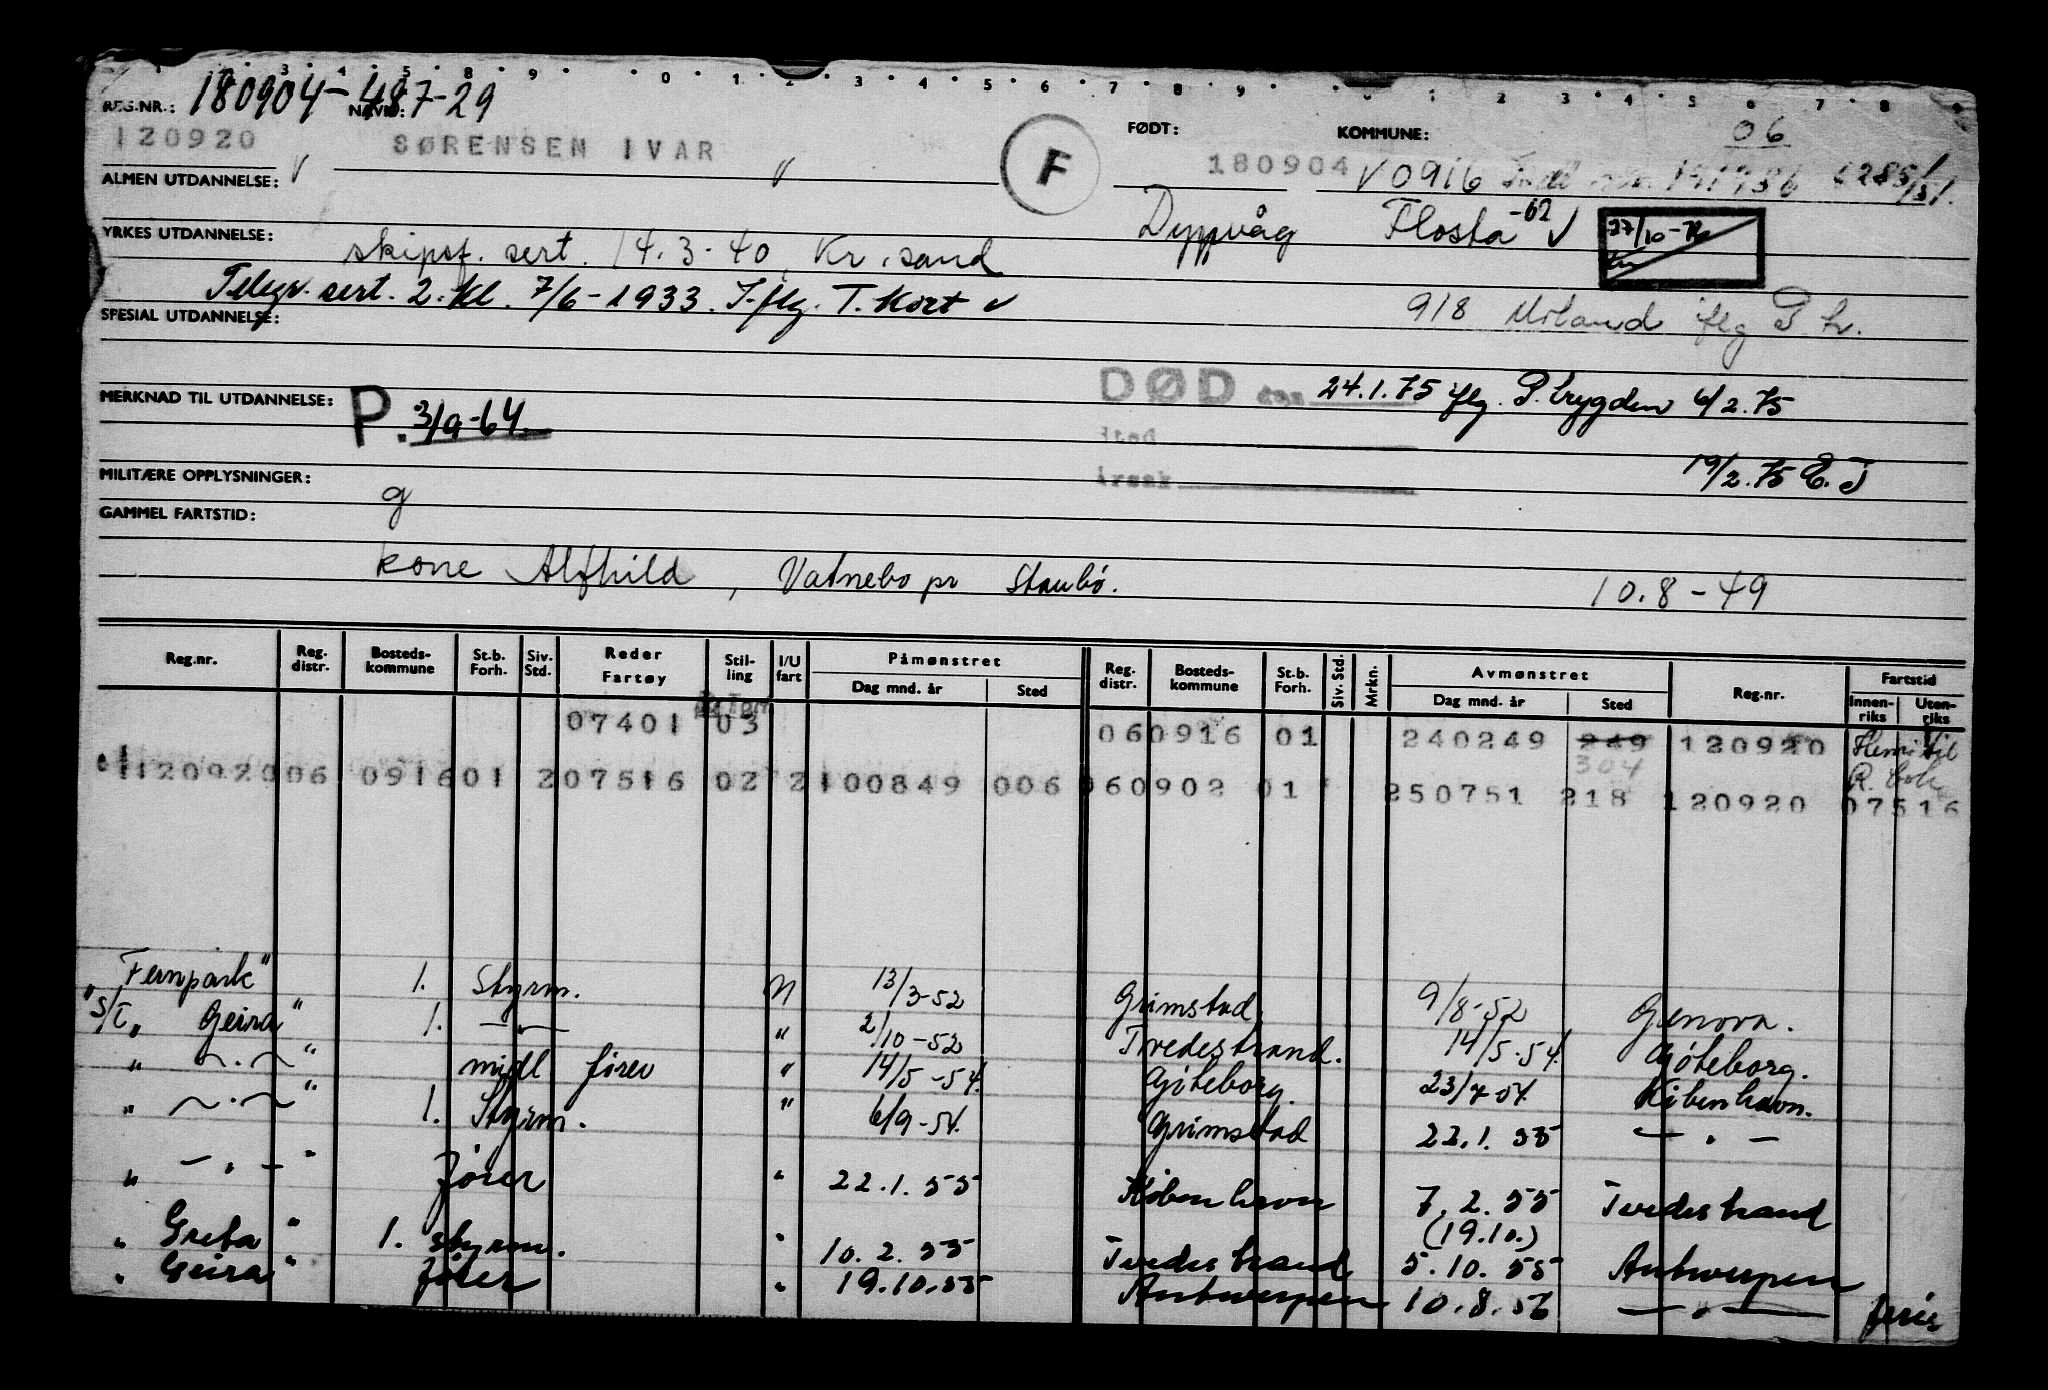 REG.NR.: 180904-487-29 NAVN:
120920 SØRENSEN IVAR F FØDT: 180904 KOMMUNE: 0916 06
ALMEN UTDANNELSE:
Dypvåg Flosta -62
YRKES UTDANNELSE: skipsf. sert. 14.3-40, Kr.sand
Telegr. sert. 2. kl. 7/6-1933. I flg. T. Kort
918 Moland iflg P tr.
SPESIAL UTDANNELSE:
DØD den 24.1.75 iflg. P.trygden 6/2.75
MERKNAD TIL UTDANNELSE: P. 3/9-64
sted
årsak 19/2.75 E.J
MILITÆRE OPPLYSNINGER: g
GAMMEL FARTSTID:
kone Alfhild, Vatnebo pr Staubø. 10.8-49
Reg.nr. Reg. distr. Bosteds-kommune St.b. Forh. Siv. Std. Reder Fartøy Stil-ling I/U fart Påmønstret Dag mnd. år Sted Reg. distr. Bosteds-kommune St.b. Forh. Siv. Std. Mrkn. Avmønstret Dag mnd. år Sted Reg.nr. Fartstid Innen-riks Uten-riks
07401 03 060916 01 240249 249 304 120920
120920 06 0916 01 2 07516 02 2 100849 006 060902 01 250751 218 120920 07516
Fernpark" 1. Styrm. N 13/3-52 Grimstad 9/8-52 Genova.
"S/T" Geira" 1. —"— " 2/10-52 Tvedestrand. 14/5.54. Göteborg.
" —"— " midl fører " 14/5-54. Göteborg. 23/7-54. København.
" —"— " 1. Styrm. " 6/9-54. Grimstad 22.1.55 — " —
" —"— " fører " 22.1.55 København 7.2.55 Tvedestrand
(19.10.)
" Greta " 1. styrm. " 10.2.55 Tvedestrand 5.10.55 Antwerpen
" Geira " fører " 19.10.55 Antwerpen 10.8.56 — " — ferie